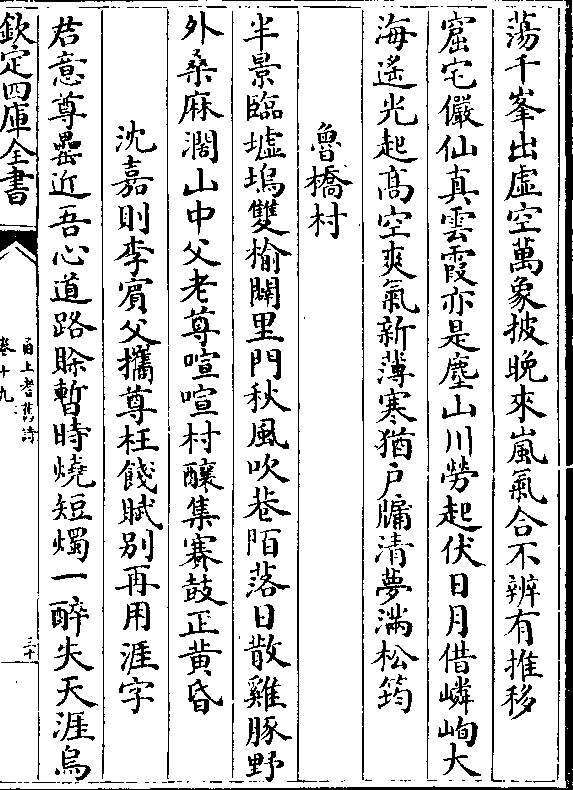 蕩千峯出虛空萬象披晩來嵐氣合不辨有推移
窟宅儼仙真雲霞亦是塵山川勞起伏日月借嶙峋大
海遙光起髙空爽氣新薄寒猶户牖清夢滿松筠
魯橋村
半景臨墟塢雙榆闢里門秋風吹巷陌落日散雞豚野
外桑麻濶山中父老尊喧喧村釀集賽鼓正黃昏
沈嘉則李賓父攜尊枉餞賦别再用涯字
君意尊罍近吾心道路賒暫時燒短燭一醉失天涯烏
欽定四庫全書
甬上耆舊詩
卷十九
三十